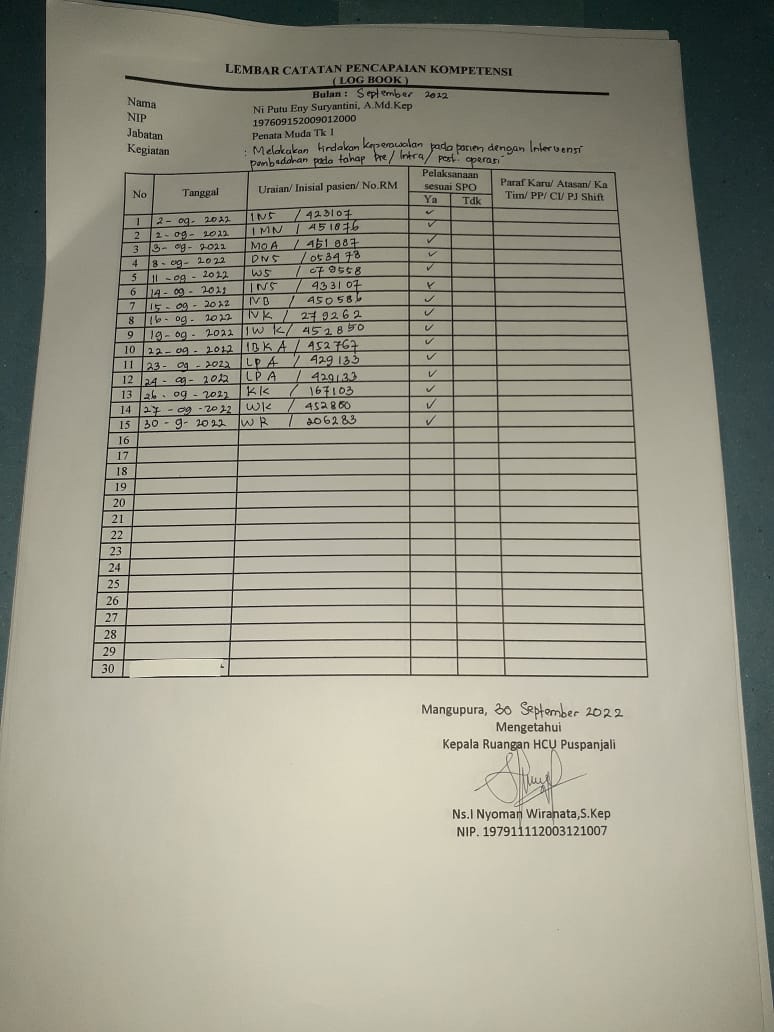 LEMBAR CATATAN PENCAPAIAN KOMPETENSI
( LOG BOOK )
Bulan : September 2022
Nama Ni Putu Eny Suryantini, A.Md.Kep
NIP 197609152009012000
Jabatan Penata Muda Tk 1
Kegiatan : Melakakan tindakan keperawatan pada pasien dengan Intervensi
pembedahan pada tahap pre / Intra / post. operasi
No Tanggal Uraian/ Inisial pasien/ No.RM Pelaksanaan sesuai SPO Paraf Karu/ Atasan/ Ka Tim/ PP/ CI/ PJ Shift
Ya Tdk
1 2-09-2022 INS / 423107 ✓
2 2-09-2022 IMN / 451876 ✓
3 3-09-2022 MOA / 451887 ✓
4 8-09-2022 DNS / 053478 ✓
5 11-09-2022 WS / 079558 ✓
6 14-09-2022 INS / 433107 ✓
7 15-09-2022 IVB / 450586 ✓
8 16-09-2022 IVK / 279262 ✓
9 19-09-2022 IWK / 452850 ✓
10 22-09-2022 IBKA / 452767 ✓
11 23-09-2022 LPA / 429133 ✓
12 24-09-2022 LPA / 429133 ✓
13 26.09-2022 KK / 167103 ✓
14 27-09-2022 WK / 452860 ✓
15 30-9-2022 WR / 206283 ✓
16
17
18
19
20
21
22
23
24
25
26
27
28
29
30
Mangupura, 30 September 2022
Mengetahui
Kepala Ruangan HCU Puspanjali
Ns.I Nyoman Wiranata,S.Kep
NIP. 197911112003121007